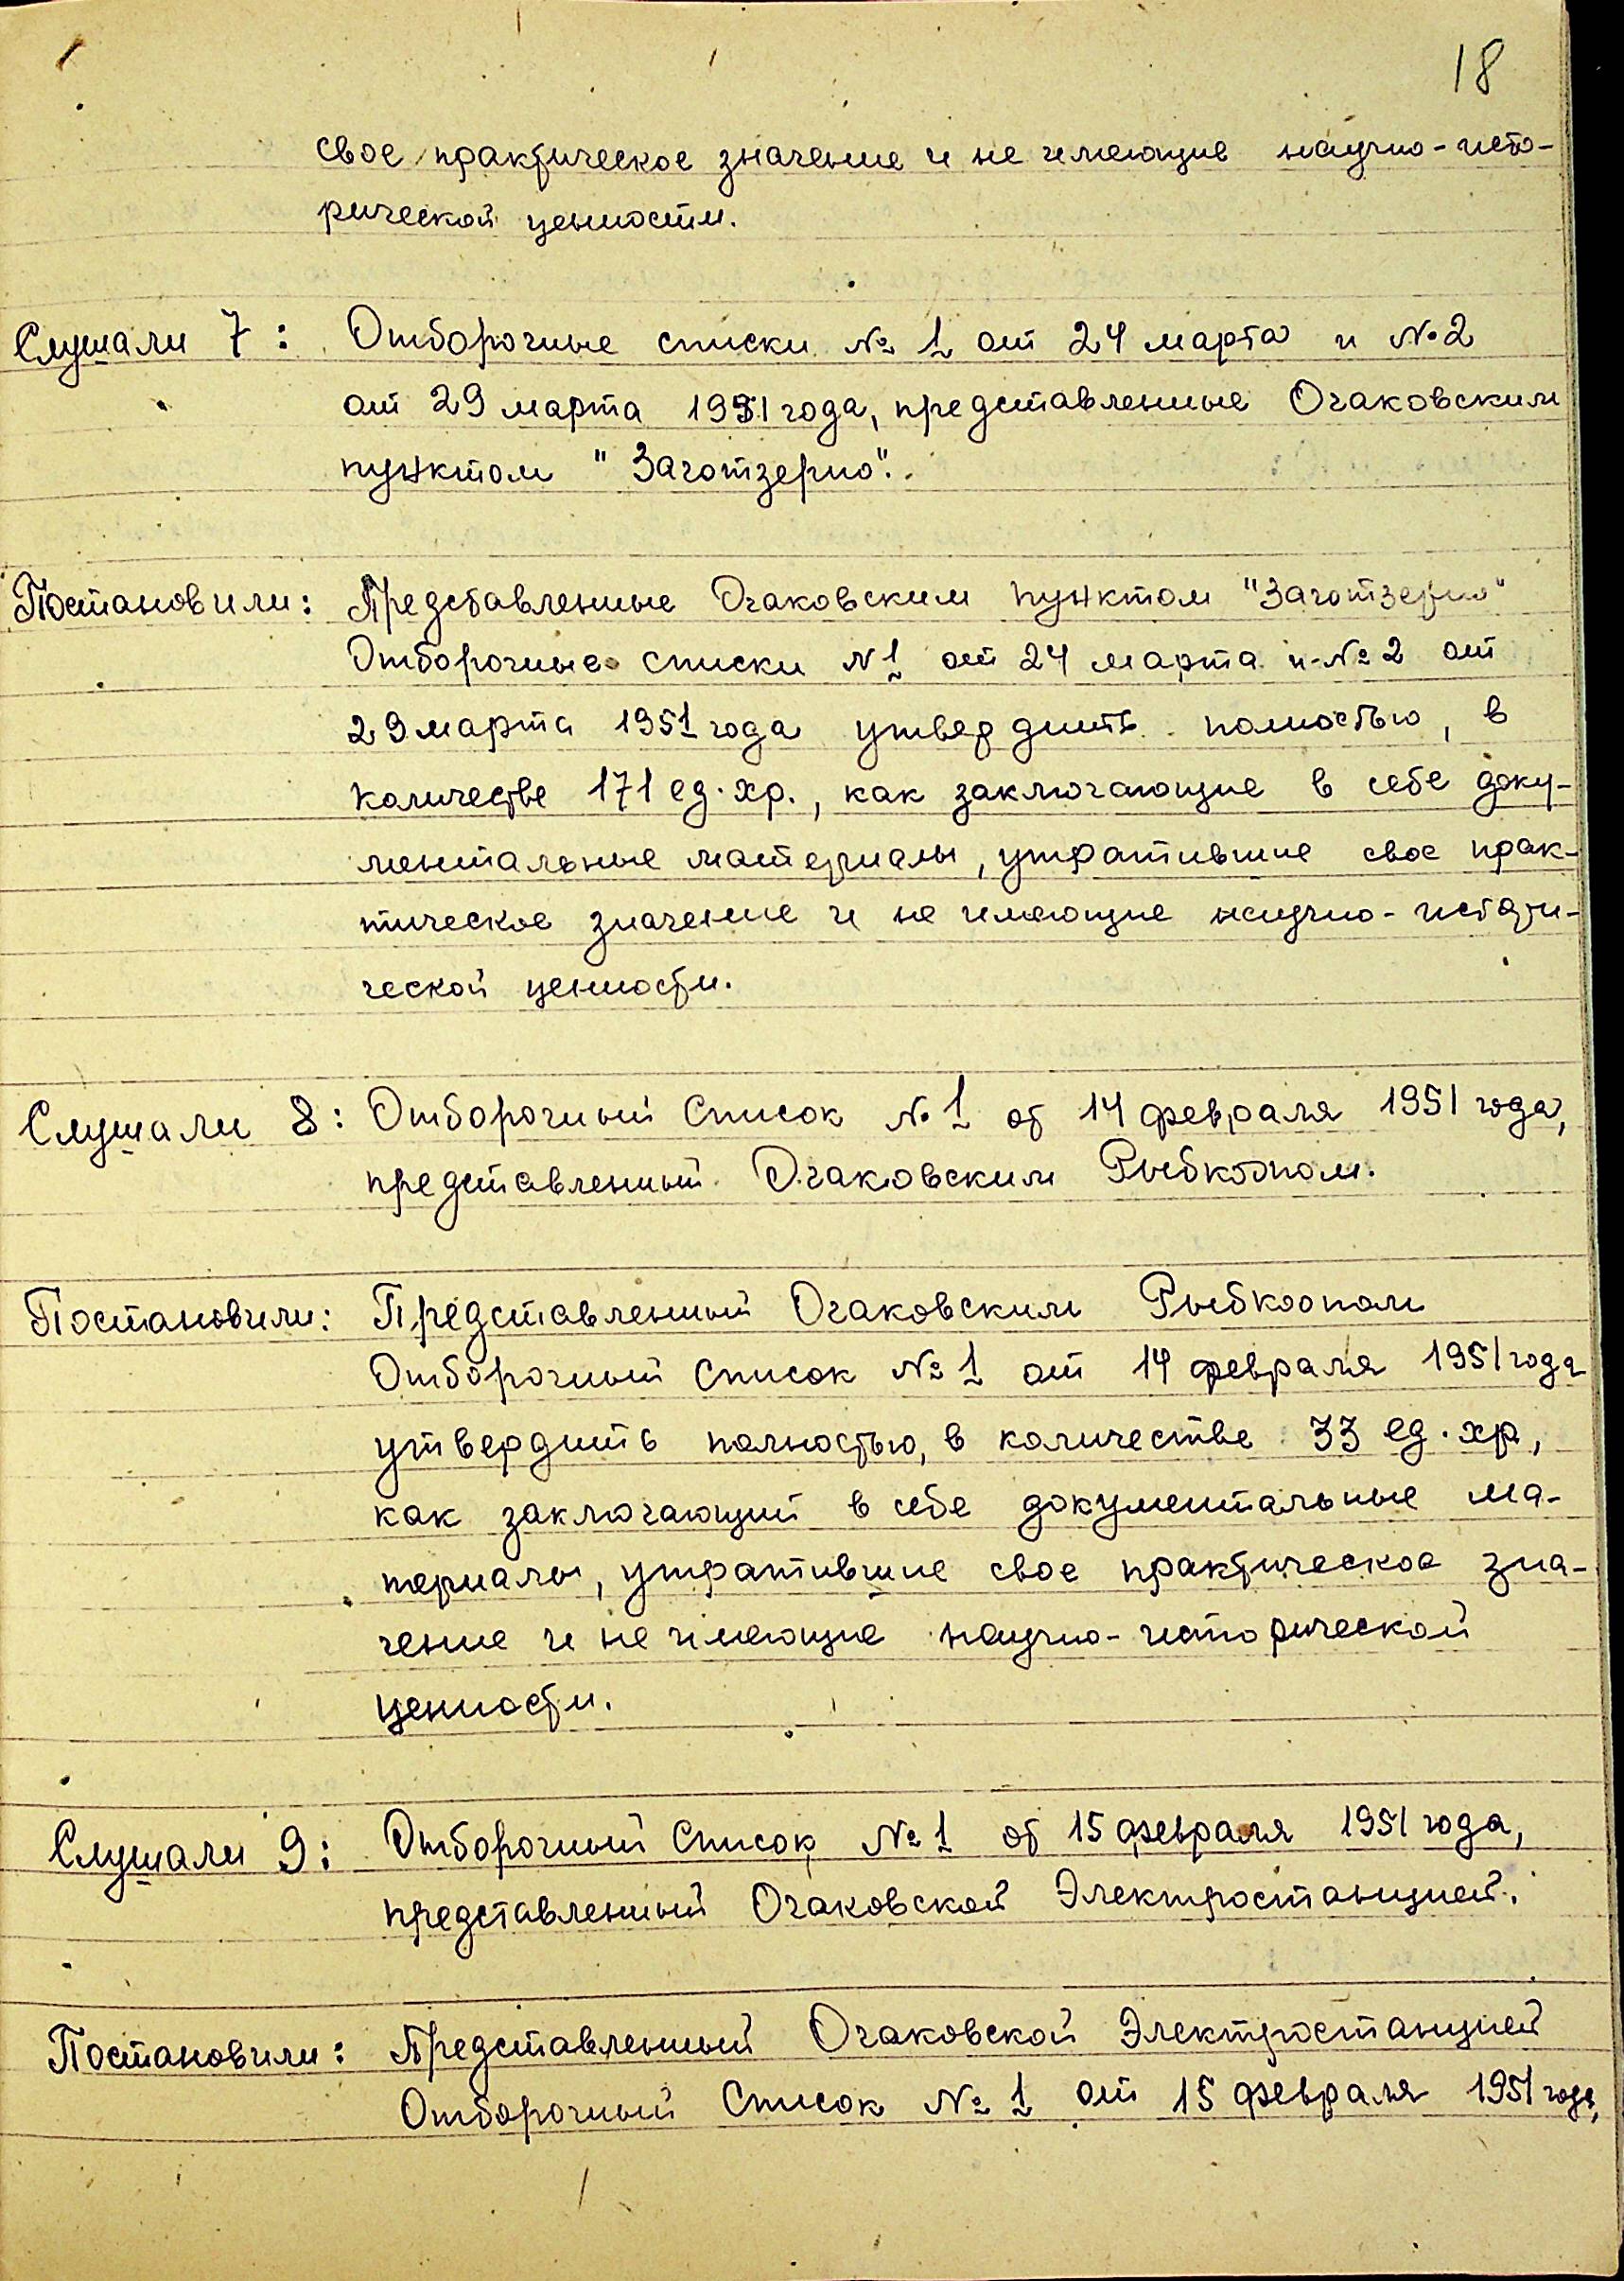 18
свое практическое значение и не имеющие научно-исто-
рической ценности.
Слушали 7: Отборочные списки № 1 от 24 марта и №2
от 29 марта 1951 года, представленные Очаковским
пунктом "Заготзерно".
Постановили: Представленные Очаковским пунктом "Заготзерно"
Отборочные списки N 1 от 24 марта и №2 от
29 марта 1951 года утвердить полностью, в
количестве 171 ед. хр., как заключающие в себе доку-
ментальные материалы, утратившие свое прак-
тическое значение и не имеющие научно-истори-
ческой ценности.
Слушали 8: Отборочный Список № 1 от 14 февраля 1951 года,
представленный Очаковским Рыбкоопом.
Постановили: Представленный Очаковским Рыбкоопом
Отборочный Список № 1 от 14 февраля 1951 года
утвердить полностью, в количестве 33 ед. хр.,
как заключающий в себе документальные ма-
териалы, утратившие свое практическое зна-
чение и не имеющие научно-исторической
ценности.
Слушали 9: Отборочный Список № 1 от 15 февраля 1951 года,
представленный Очаковской Электростанцией.
Постановили: Представленный Очаковской Электростанцией
Отборочный Список № 1 от 15 февраля 1951 года,